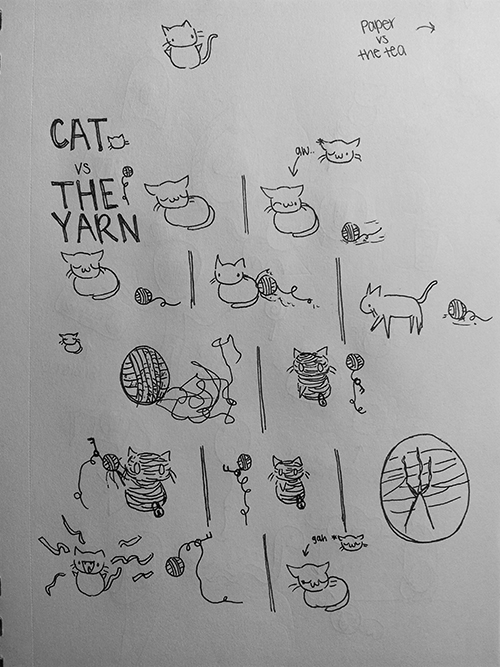 PAPER
vs
the tea
CAT
vs
THE
YARN
aw..
gah